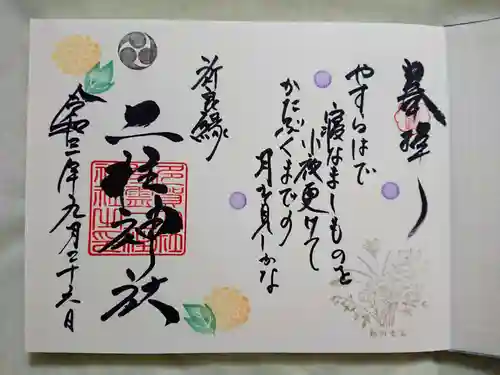 奉拝
やすらはで
寝なましものを
小夜更けて
かたぶくまでの
月を見しかな
祈良縁
二柱神社
令和二年九月二十六日